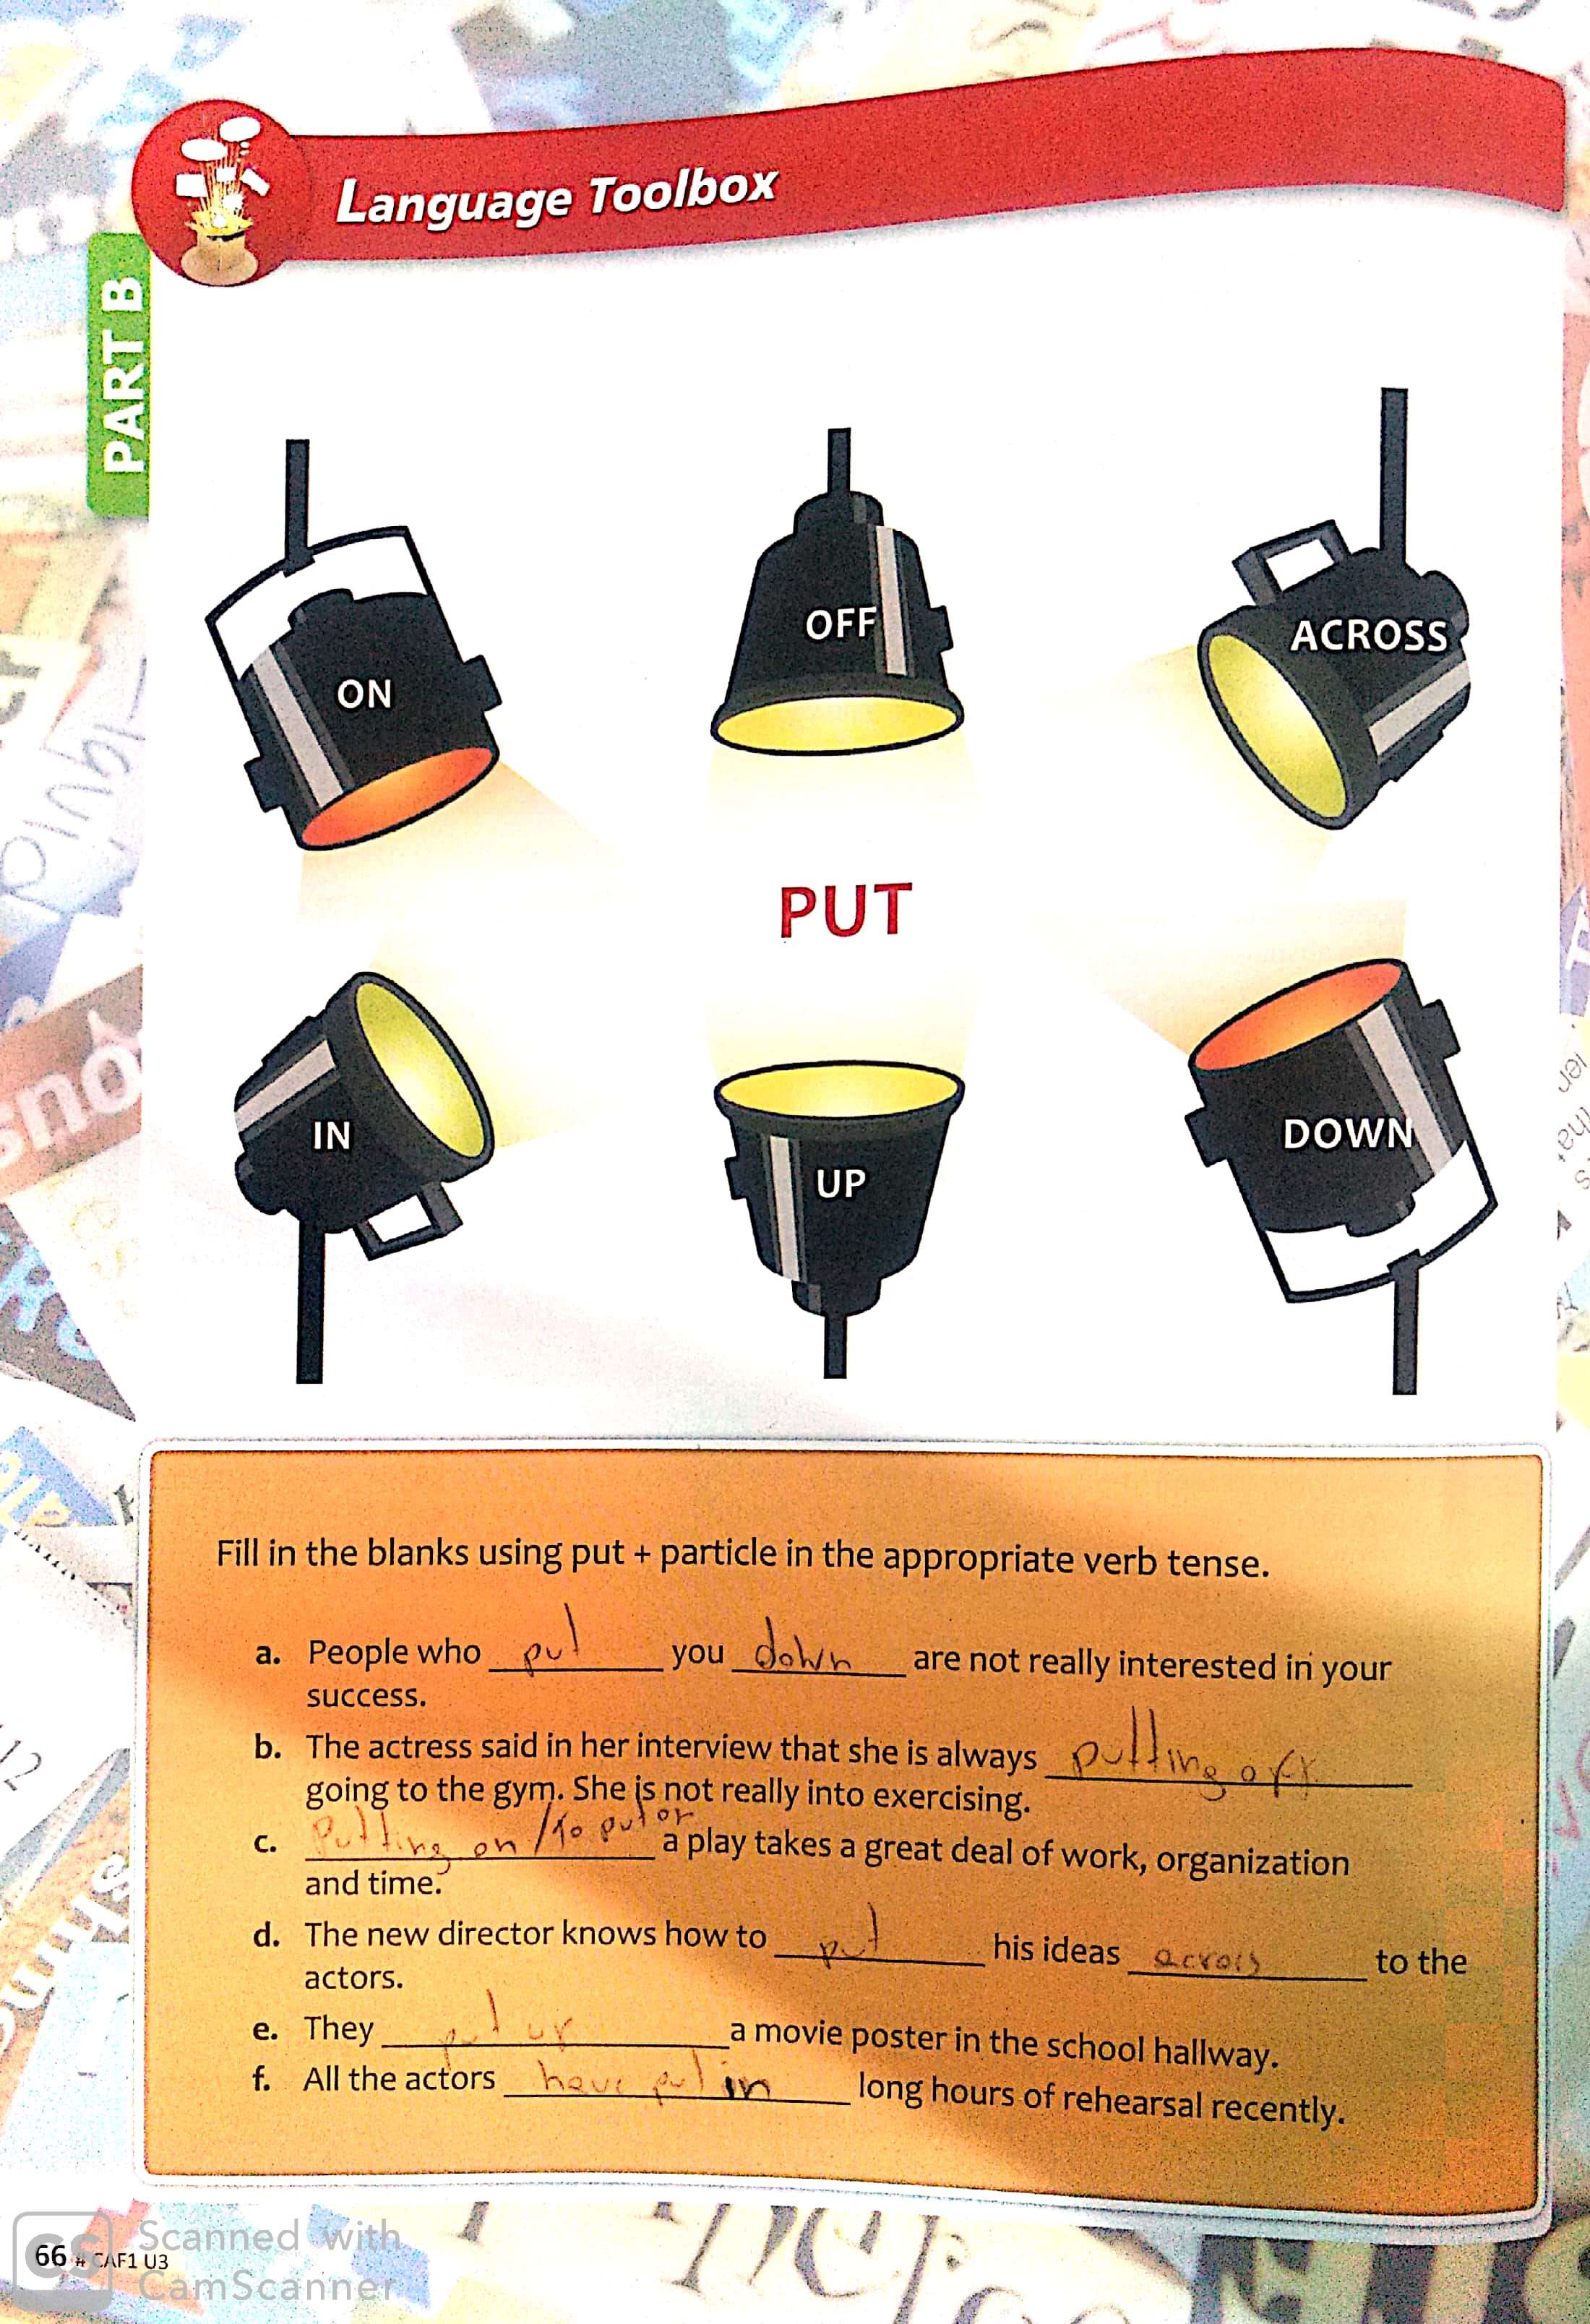 Language Toolbox
PART B
ON
OFF
ACROSS
PUT
IN
UP
DOWN
Fill in the blanks using put + particle in the appropriate verb tense.
a. People who put you down are not really interested in your
success.
b. The actress said in her interview that she is always putting off
going to the gym. She is not really into exercising.
c. Putting on / To put on a play takes a great deal of work, organization
and time.
d. The new director knows how to put his ideas across to the
actors.
e. They put up a movie poster in the school hallway.
f. All the actors have put in long hours of rehearsal recently.
66 # CAF1 U3
CS Scanned with
CamScanner